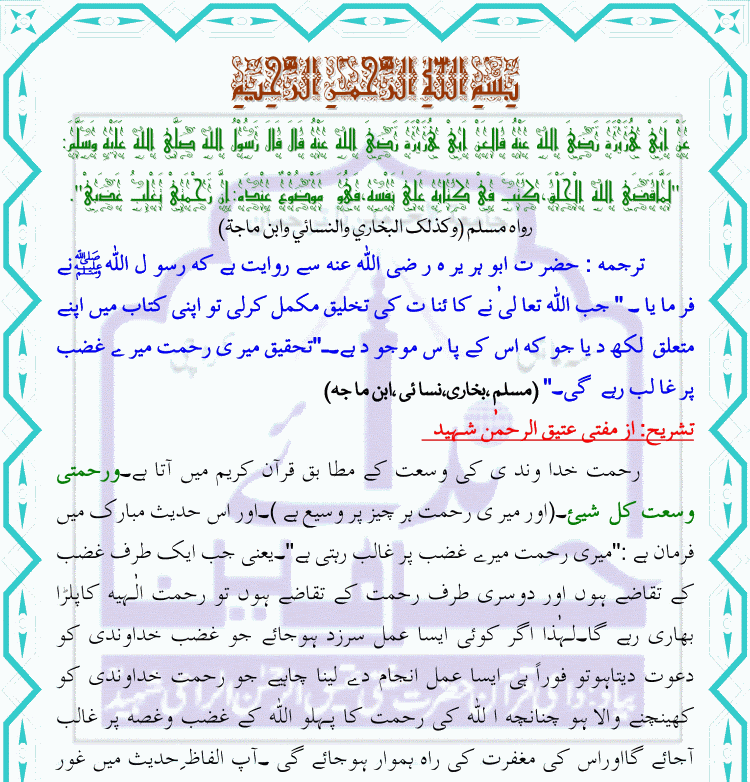 بِسْمِ اللّٰهِ الرَّحْمٰنِ الرَّحِيْمِ
عَنْ اَبِىْ هُرَيْرَةَ رَضِىَ اللّٰهُ عَنْهُ قَالَ عَنْ اَبِىْ هُرَيْرَةَ رَضِىَ اللّٰهُ عَنْهُ قَالَ قَالَ رَسُوْلُ اللّٰهِ صَلَّى اللّٰهُ عَلَيْهِ وَسَلَّمَ:
"لَمَّا قَضَى اللّٰهُ الْخَلْقَ، كَتَبَ فِىْ كِتَابِهِ عَلىٰ نَفْسِهِ، فَهُوَ مَوْضُوْعٌ عِنْدَهُ: اِنَّ رَحْمَتِىْ تَغْلِبُ غَضَبِىْ".
رواه مسلم (وكذلك البخاري والنسائي وابن ماجة)
ترجمه : حضر ت ابو ہر یر ہ ر ضی اللّٰه عنه سے روایت ہے که رسو ل اللّٰه ﷺ نے
فر ما یا ۔ " جب اللّٰه تعا لیٰ نے کا ئنا ت کی تخلیق مکمل کرلی تو اپنی کتاب میں اپنے
متعلق لکھ د یا جو که اس کے پا س موجو د ہے۔۔"تحقیق میر ی رحمت میر ے غضب
پر غا لب رہے گی۔" (مسلم ،بخاری،نسا ئی ،ابن ما جه)
تشریح: از مفتی عتیق الرحمٰن شہید
رحمت خدا وند ی کی وسعت کے مطا بق قرآن کریم میں آتا ہے۔ورحمتی
وسعت کل شیئ۔(اور میر ی رحمت ہر چیز پر وسیع ہے )۔اور اس حدیث مبارک میں
فرمان ہے :"میری رحمت میرے غضب پر غالب رہتی ہے"۔یعنی جب ایک طرف غضب
کے تقاضے ہوں اور دوسری طرف رحمت کے تقاضے ہوں تو رحمت الٰہیه کاپلڑا
بھاری رہے گا۔لہٰذا اگر کوئی ایسا عمل سرزد ہوجائے جو غضب خداوندی کو
دعوت دیتاہوتو فوراً ہی ایسا عمل انجام دے لینا چاہیے جو رحمت خداوندی کو
کھینچنے والا ہو چنانچه ا للّٰه کی رحمت کا پہلو اللّٰه کے غضب وغصه پر غالب
آجائے گااوراس کی مغفرت کی راہ ہموار ہوجائے گی ۔آپ الفاظِ حدیث میں غور